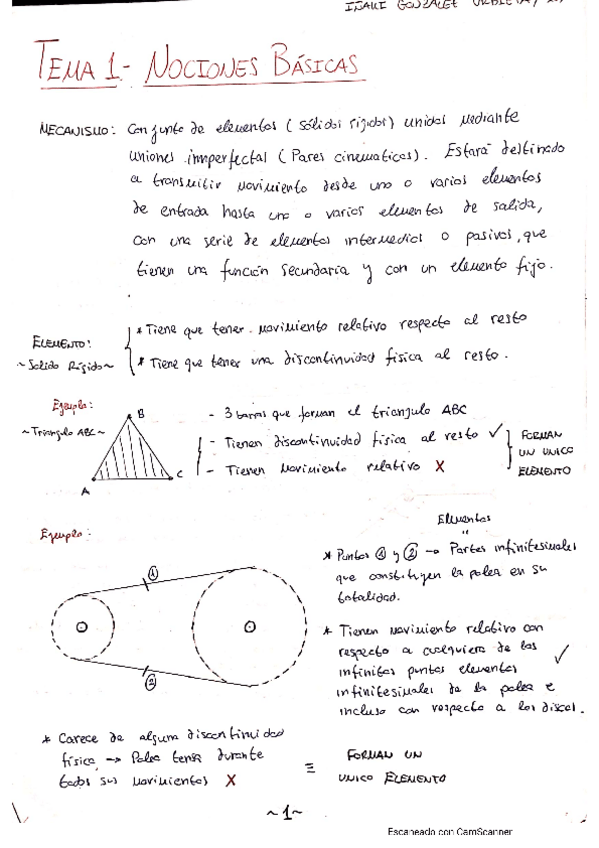 IÑAKI GONZALEZ
TEMA 1.- NOCIONES BÁSICAS
MECANISMO: Conjunto de elementos (sólidos rígidos) unidos mediante
uniones imperfectas (Pares cinematicos). Estará destinado
a transmitir movimiento desde uno o varios elementos
de entrada hasta uno o varios elementos de salida,
con una serie de elementos intermedios o pasivos, que
tienen una función secundaria y con un elemento fijo.
ELEMENTO:
~Solido Rígido~
* Tiene que tener movimiento relativo respecto al resto
* Tiene que tener una discontinuidad física al resto.
Ejemplo:
~Triangulo ABC~
A
B
C
- 3 barras que forman el triangulo ABC
- Tienen discontinuidad física al resto ✓
- Tienen movimiento relativo X
FORMAN
UN UNICO
ELEMENTO
Ejemplo:
1
2
Elementos
"
* Puntos ① y ② → Partes infinitesimales
que constituyen la polea en su
totalidad.
* Tienen movimiento relativo con
respecto a cualquiera de los
infinitos puntos elementos
infinitesimales de la polea e
incluso con respecto a los discos.
✓
* Carece de alguna discontinuidad
física → Polea tensa durante
todos sus movimientos X
≡ FORMAN UN
UNICO ELEMENTO
~1~
Escaneado con CamScanner